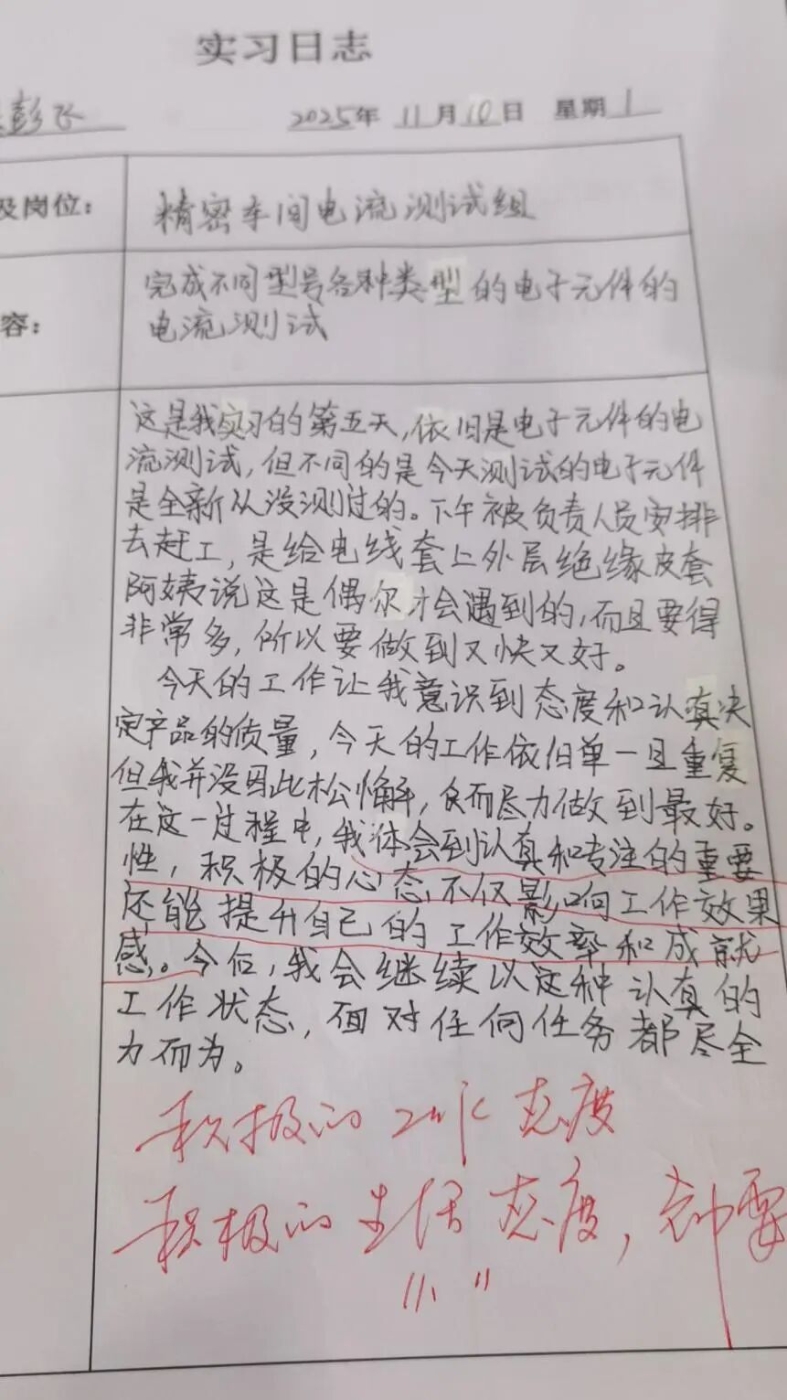 实习日志
彭飞 2025年 11月10日 星期1
及岗位：
精密车间电流测试组
容：
完成不同型号各种类型的电子元件的
电流测试
这是我实习的第五天，依旧是电子元件的电
流测试，但不同的是今天测试的电子元件
是全新从没测过的。下午被负责人员安排
去赶工，是给电线套上外层绝缘皮套
阿姨说这是偶尔才会遇到的，而且要得
非常多，所以要做到又快又好。
今天的工作让我意识到态度和认真决
定产品的质量，今天的工作依旧单一且重复
但我并没因此松懈，反而尽力做到最好。
在这一过程中，我体会到认真和专注的重要
性，积极的心态不仅影响工作效果
还能提升自己的工作效率和成就
感。今后，我会继续以这种认真的
工作状态，面对任何任务都尽全
力而为。
积极的工作态度
积极的生活态度，都需
11/11